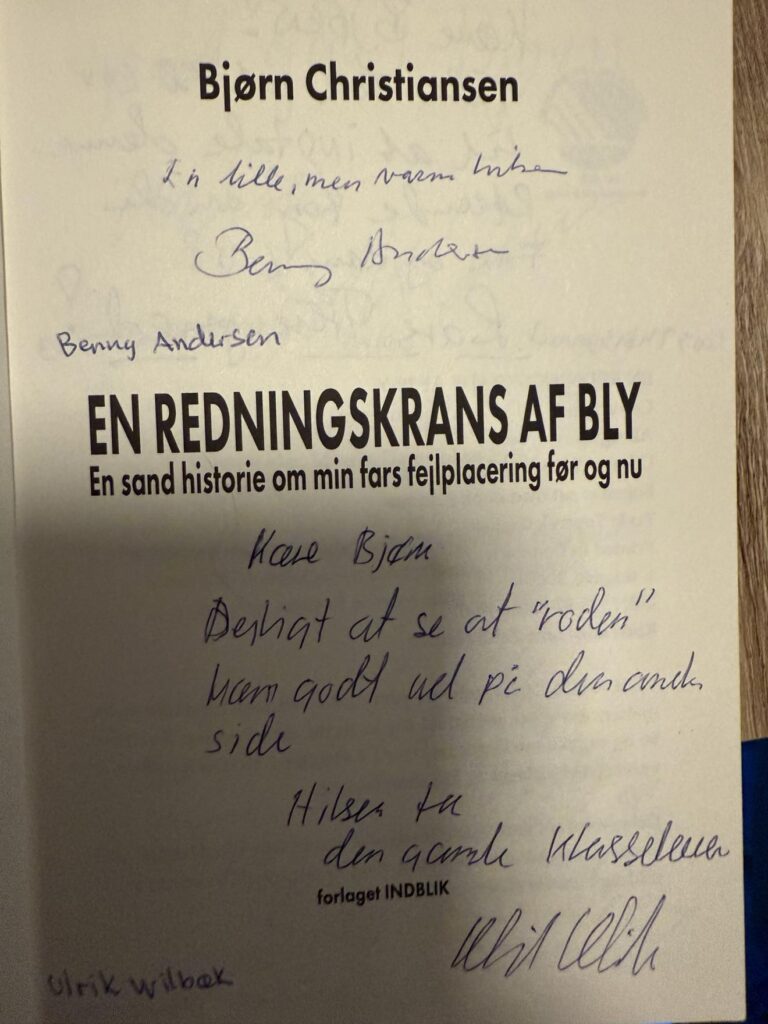 Bjørn Christiansen
En lille, men varm hilsen
Benny Andersen
Benny Andersen
EN REDNINGSKRANS AF BLY
En sand historie om min fars fejlplacering før og nu
Kære Bjørn
Dejligt at se at "roden"
kom godt ud på den anden
side
Hilsen fra
den gamle klasselærer
forlaget INDBLIK
Ulrik Wilbæk